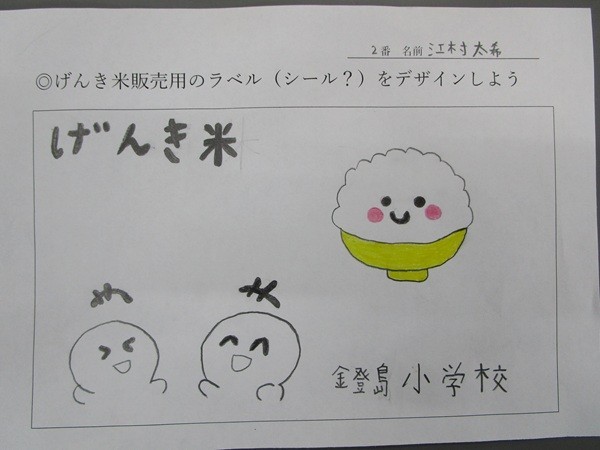 2番 名前 江村太希
◎げんき米販売用のラベル（シール？）をデザインしよう
げんき米
金登島 小学校